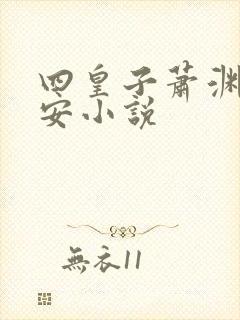 四皇子蕭淵
安小說
無衣11